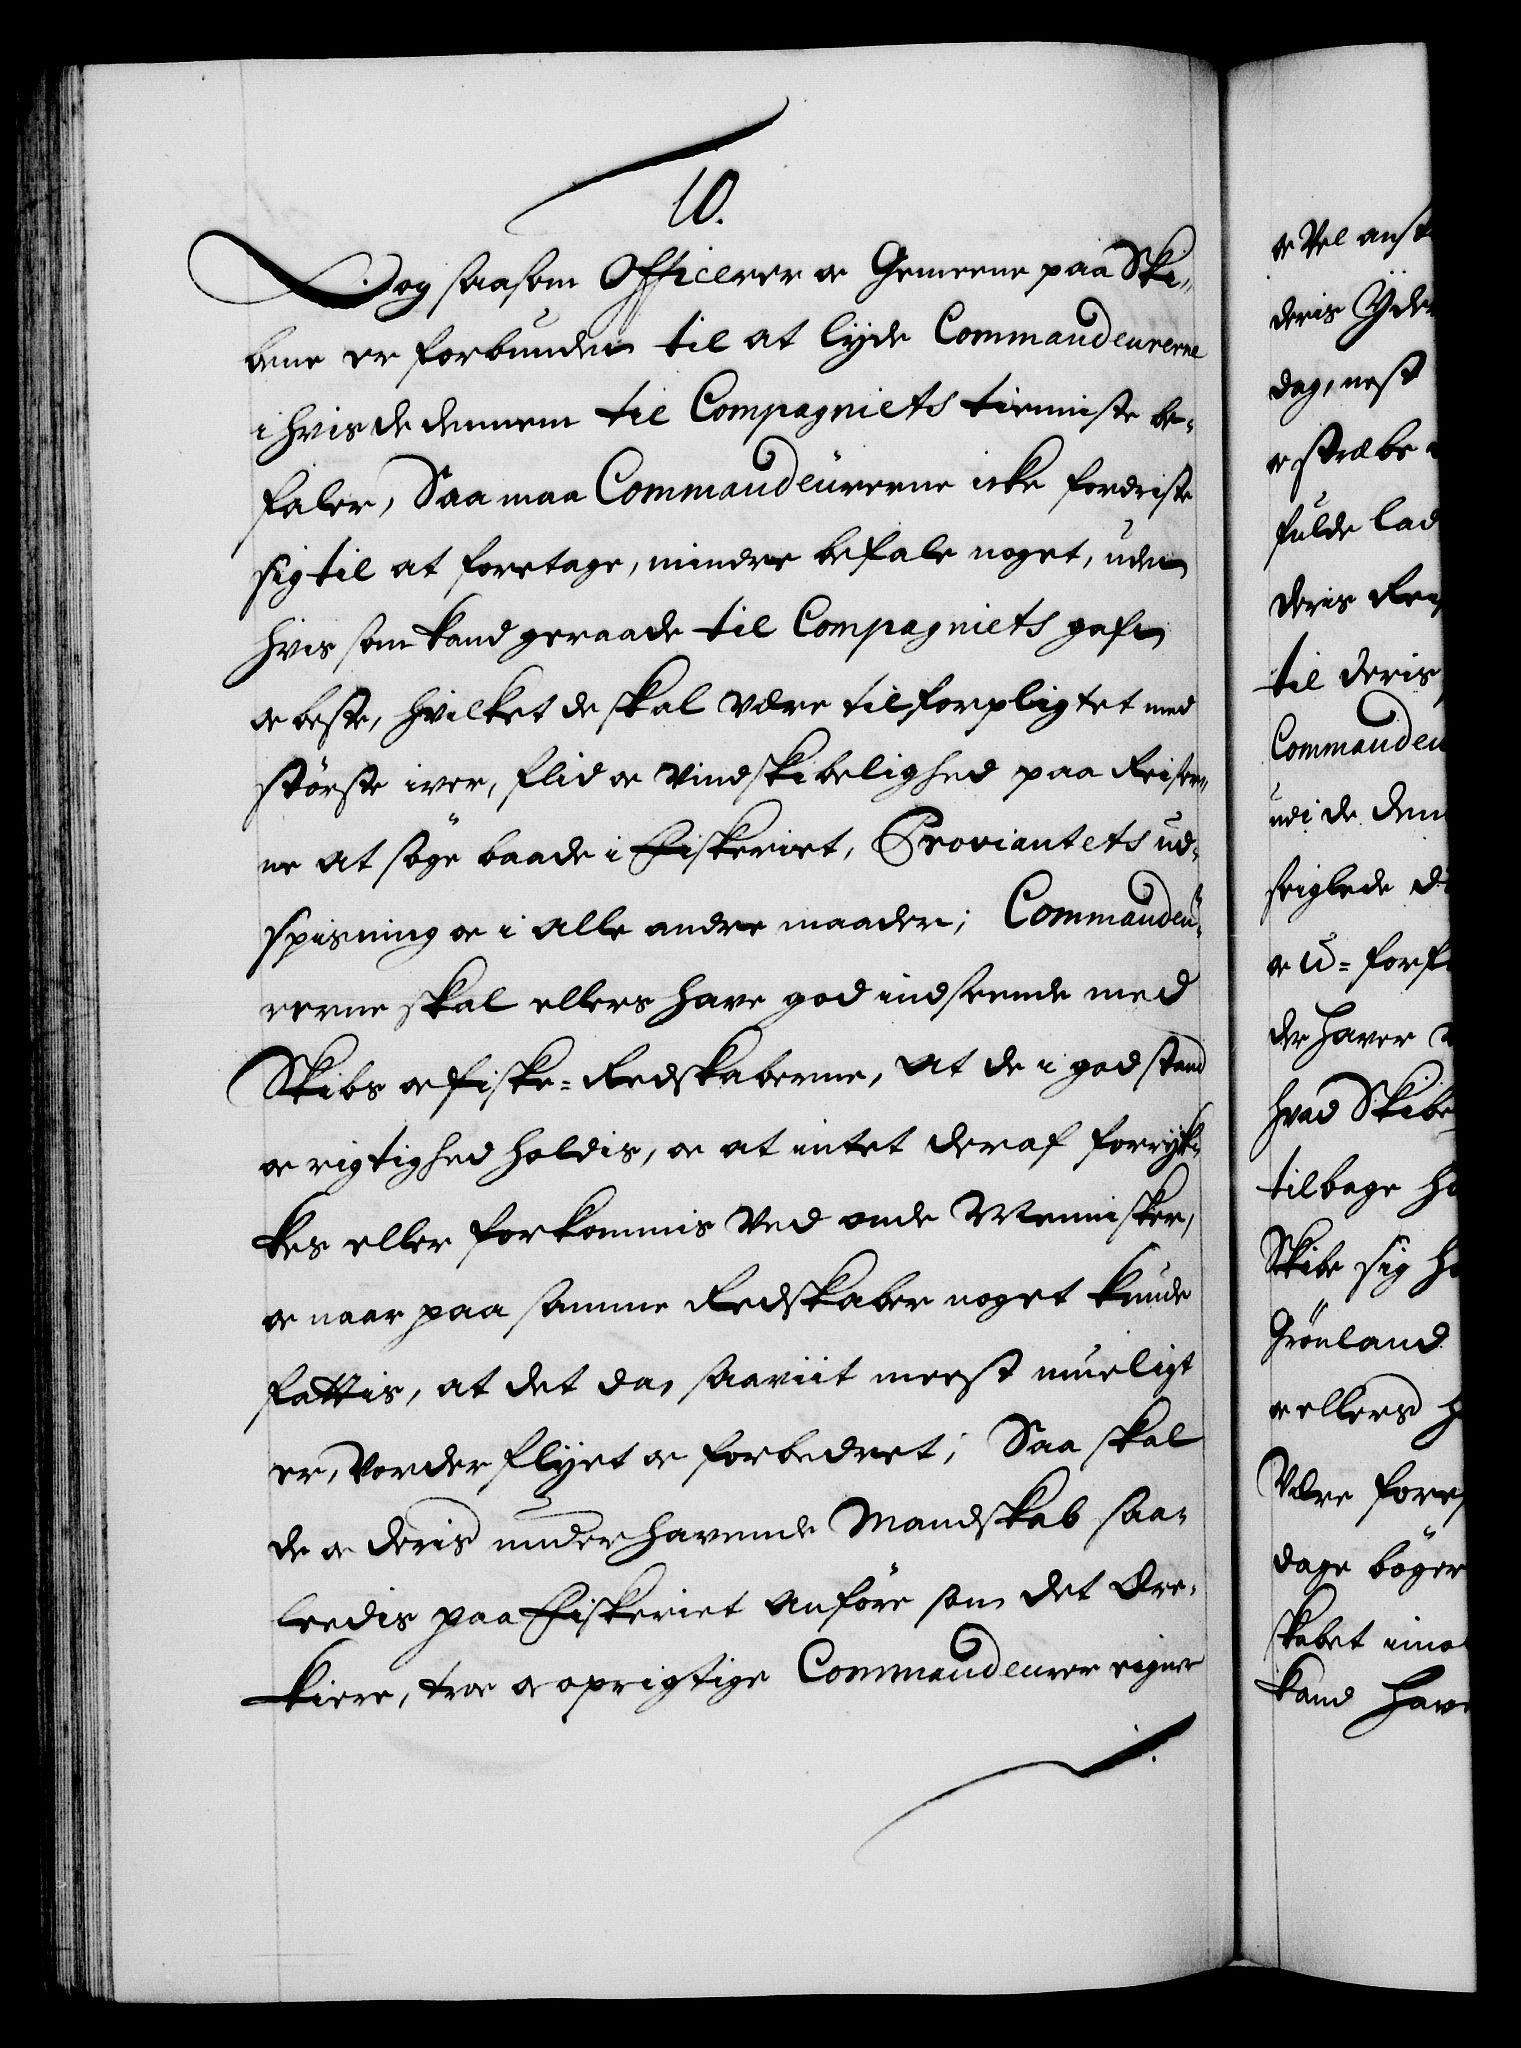 10.
Dog saasom Officerer oc Gemeene paa Ski-
bene er forbunden til at lyde Commandeurerne
i hvis de dennem til Compagniets tienniste be-
faler, Saa maa Commandeurerne icke fordriste
sig til at foretage, mindre befale noget, uden
hvis som kand geraade til Compagniets gafn
oc beste, hvilket de skal være til forpligtet med
störste iver, flid oc Vindskibelighed paa Reiser-
ne at söge baade i Fiskeriet, Proviantets ud-
spisning oc i alle andre maader; Commandeu-
rerne skal ellers have god indseende med
Skibs oc Fiske-Redskaberne, at de i god stand
oc rigtighed holdis, oc at intet deraf forryk-
kes eller forkommis Ved onde Mennisker,
oc naar paa samme Redskaber noget kunde
fattis, at det da, saaviit meest mueligt
er, Vorder flyet oc forbedret; Saa skal
de oc deris underhavende Mandskab saa-
ledis paa Fiskeriet anföre som det Ære-
kiere, troe oc oprigtige Commandeurer eigner
oc Vel anst
deris Yder
dag, nest
oc stræbe
fulde lad
deris Rei
til deris
Commandeu
udi de den
seiglede
oc U-forf
der haver
hvad Skibe
tilbage
Skibe sig
Grönland
oc ellers
Være
dage böger
skabet
kand have